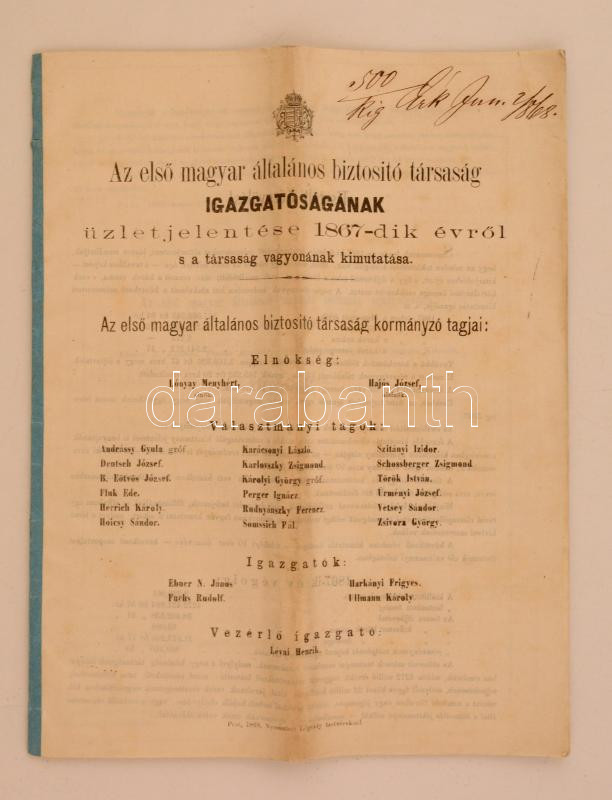 500
Kig Érk Jun. 2/868.
Az első magyar általános biztositó társaság
IGAZGATÓSÁGÁNAK
üzletjelentése 1867-dik évről
s a társaság vagyonának kimutatása.
Az első magyar általános biztositó társaság kormányzó tagjai:
Elnökség:
Lónyay Menyhért, Hajós József,
Választmányi tagok:
Andrássy Gyula gróf. Karácsonyi László. Szitányi Izidor.
Deutsch József. Karlovszky Zsigmond. Schossberger Zsigmond
B. Eötvös József. Károlyi György gróf. Török István.
Fluk Ede. Perger Ignácz. Ürményi József.
Herrich Károly. Rudnyánszky Ferencz. Vetsey Sándor.
Hoicsy Sándor. Somssich Pál. Zsivora György.
Igazgatók:
Ebner N. János Harkányi Frigyes.
Fuchs Rudolf. Ullmann Károly.
Vezérlő igazgató:
Lévai Henrik.
Pest, 1868. Nyomatott Légrády testvéreknél
darabanth